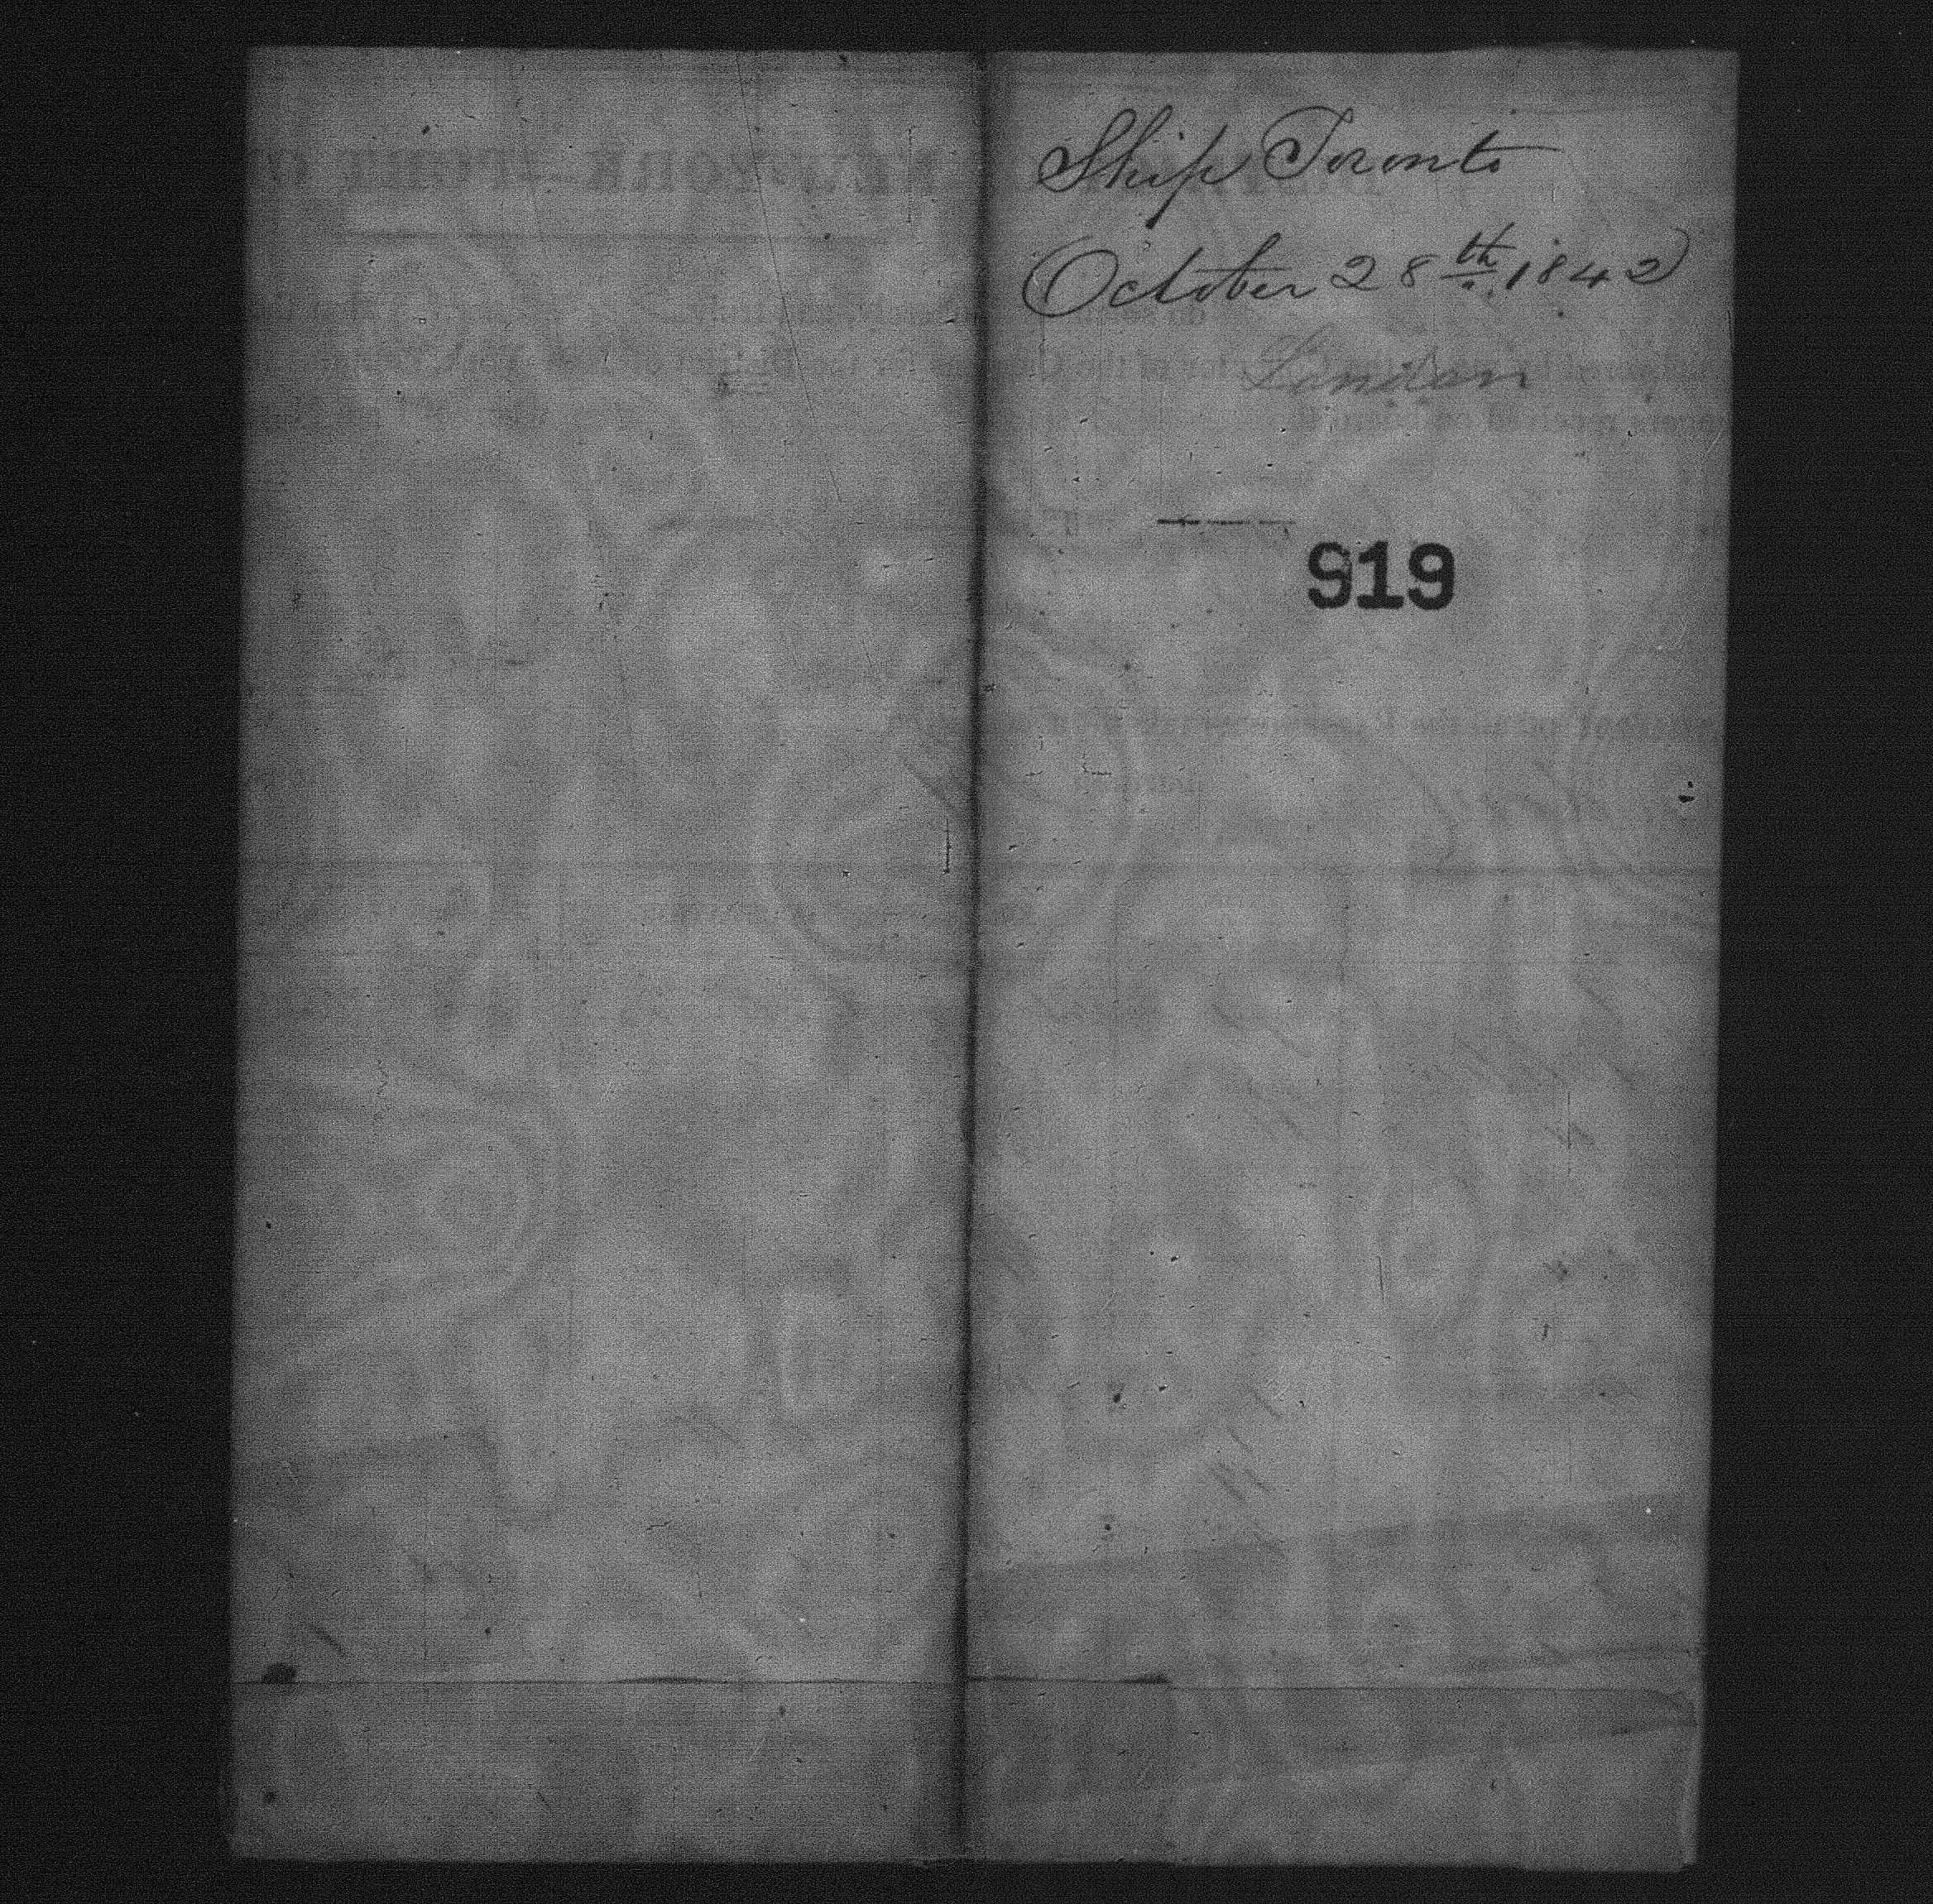 Ship Toronto
October 28th 1842
London
919